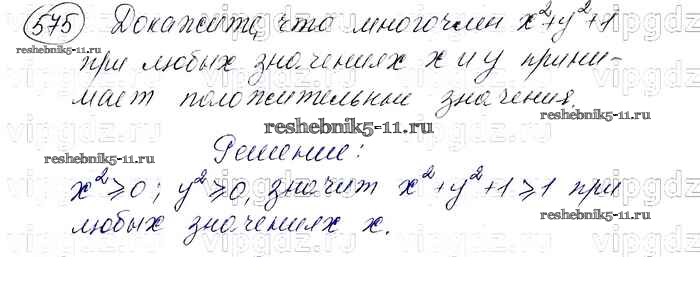 575 Докажите, что многочлен x²+y²+1
при любых значениях x и y прини-
мает положительные значения.
reshebnik5-11.ru
reshebnik5-11.ru
Решение:
reshebnik5-11.ru
x²⩾0; y²⩾0, значит x²+y²+1⩾1 при
любых значениях x.
reshebnik5-11.ru
vipgdz